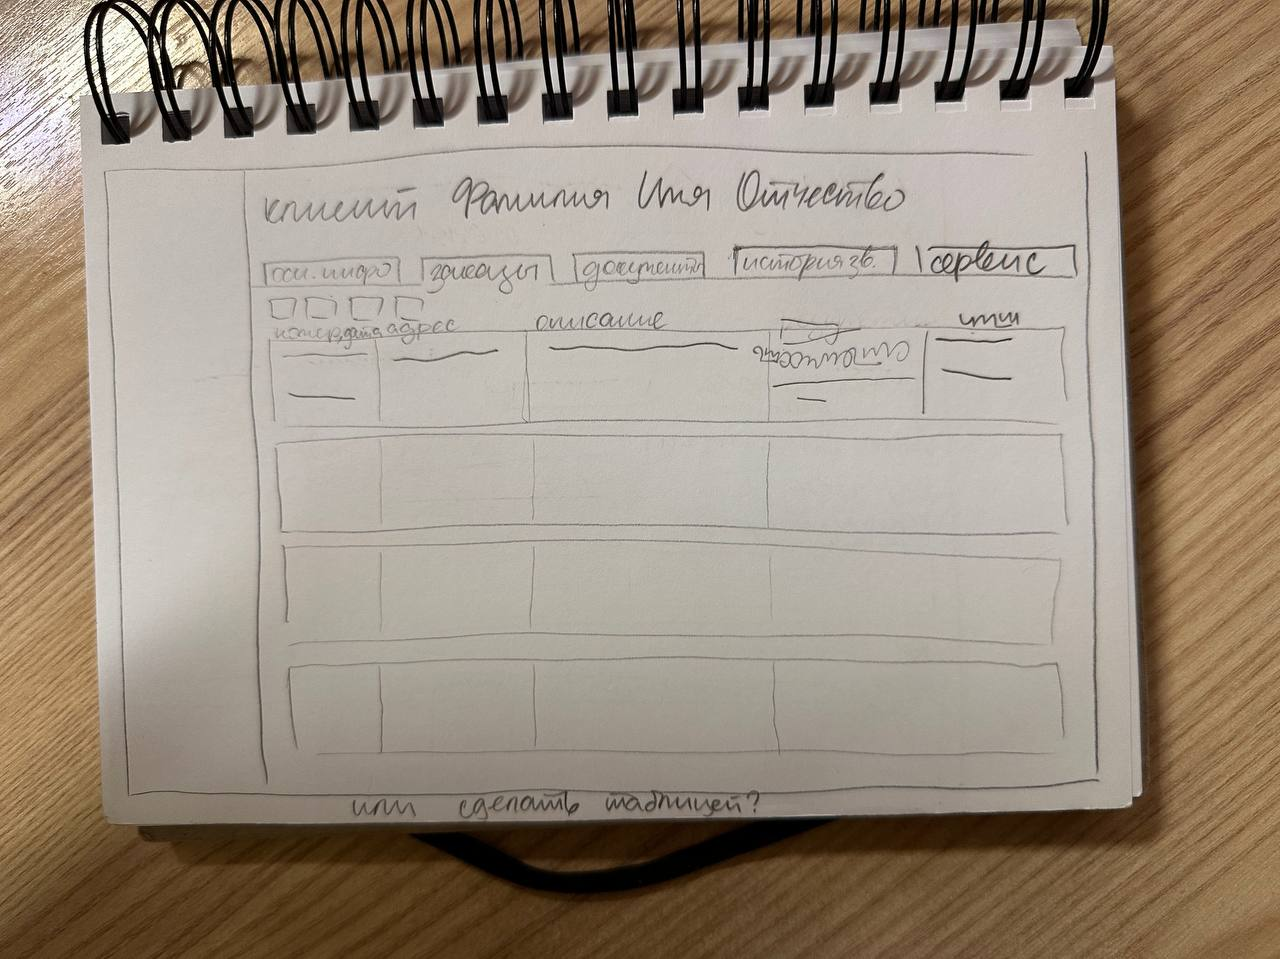 клиент Фамилия Имя Отчество
осн. инфо заказы документы история зв. сервис
номер, дата адрес описание стоимость
или сделать таблицей?